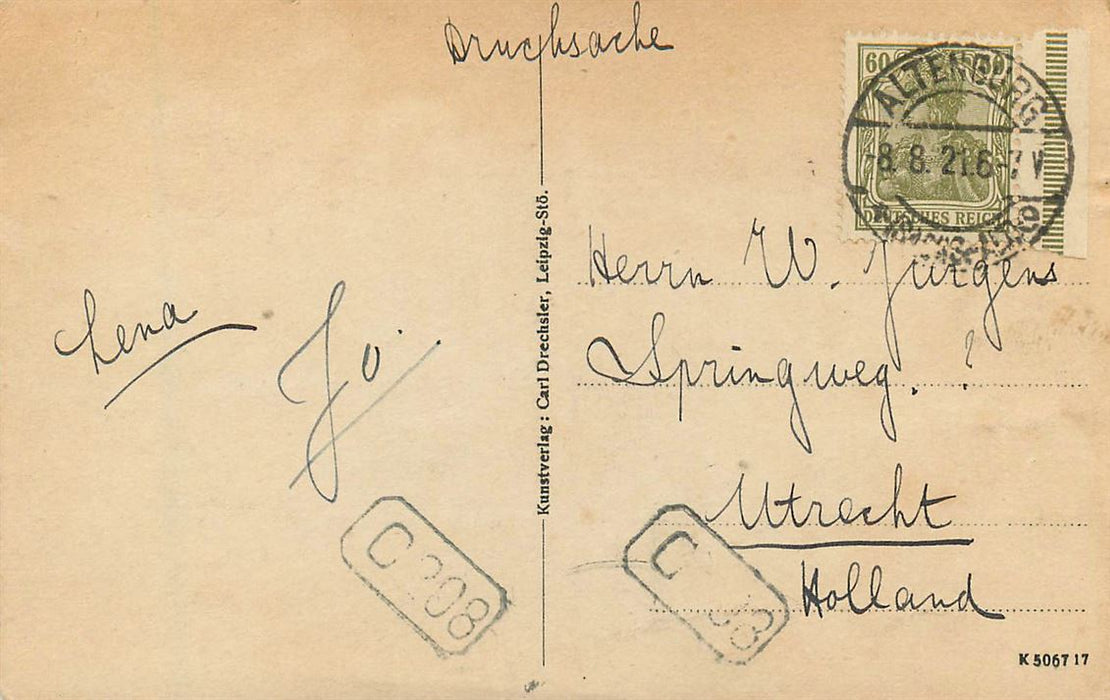 Drucksache
60
ALTENBURG
-8.8.21.6-7 V
DEUTSCHES REICH
Herrn W. Jurgens
Springweg. ?
Utrecht
Holland
Lena
Jo.
Kunstverlag : Carl Drechsler, Leipzig-Stö.
C 208
C
K 5067 17